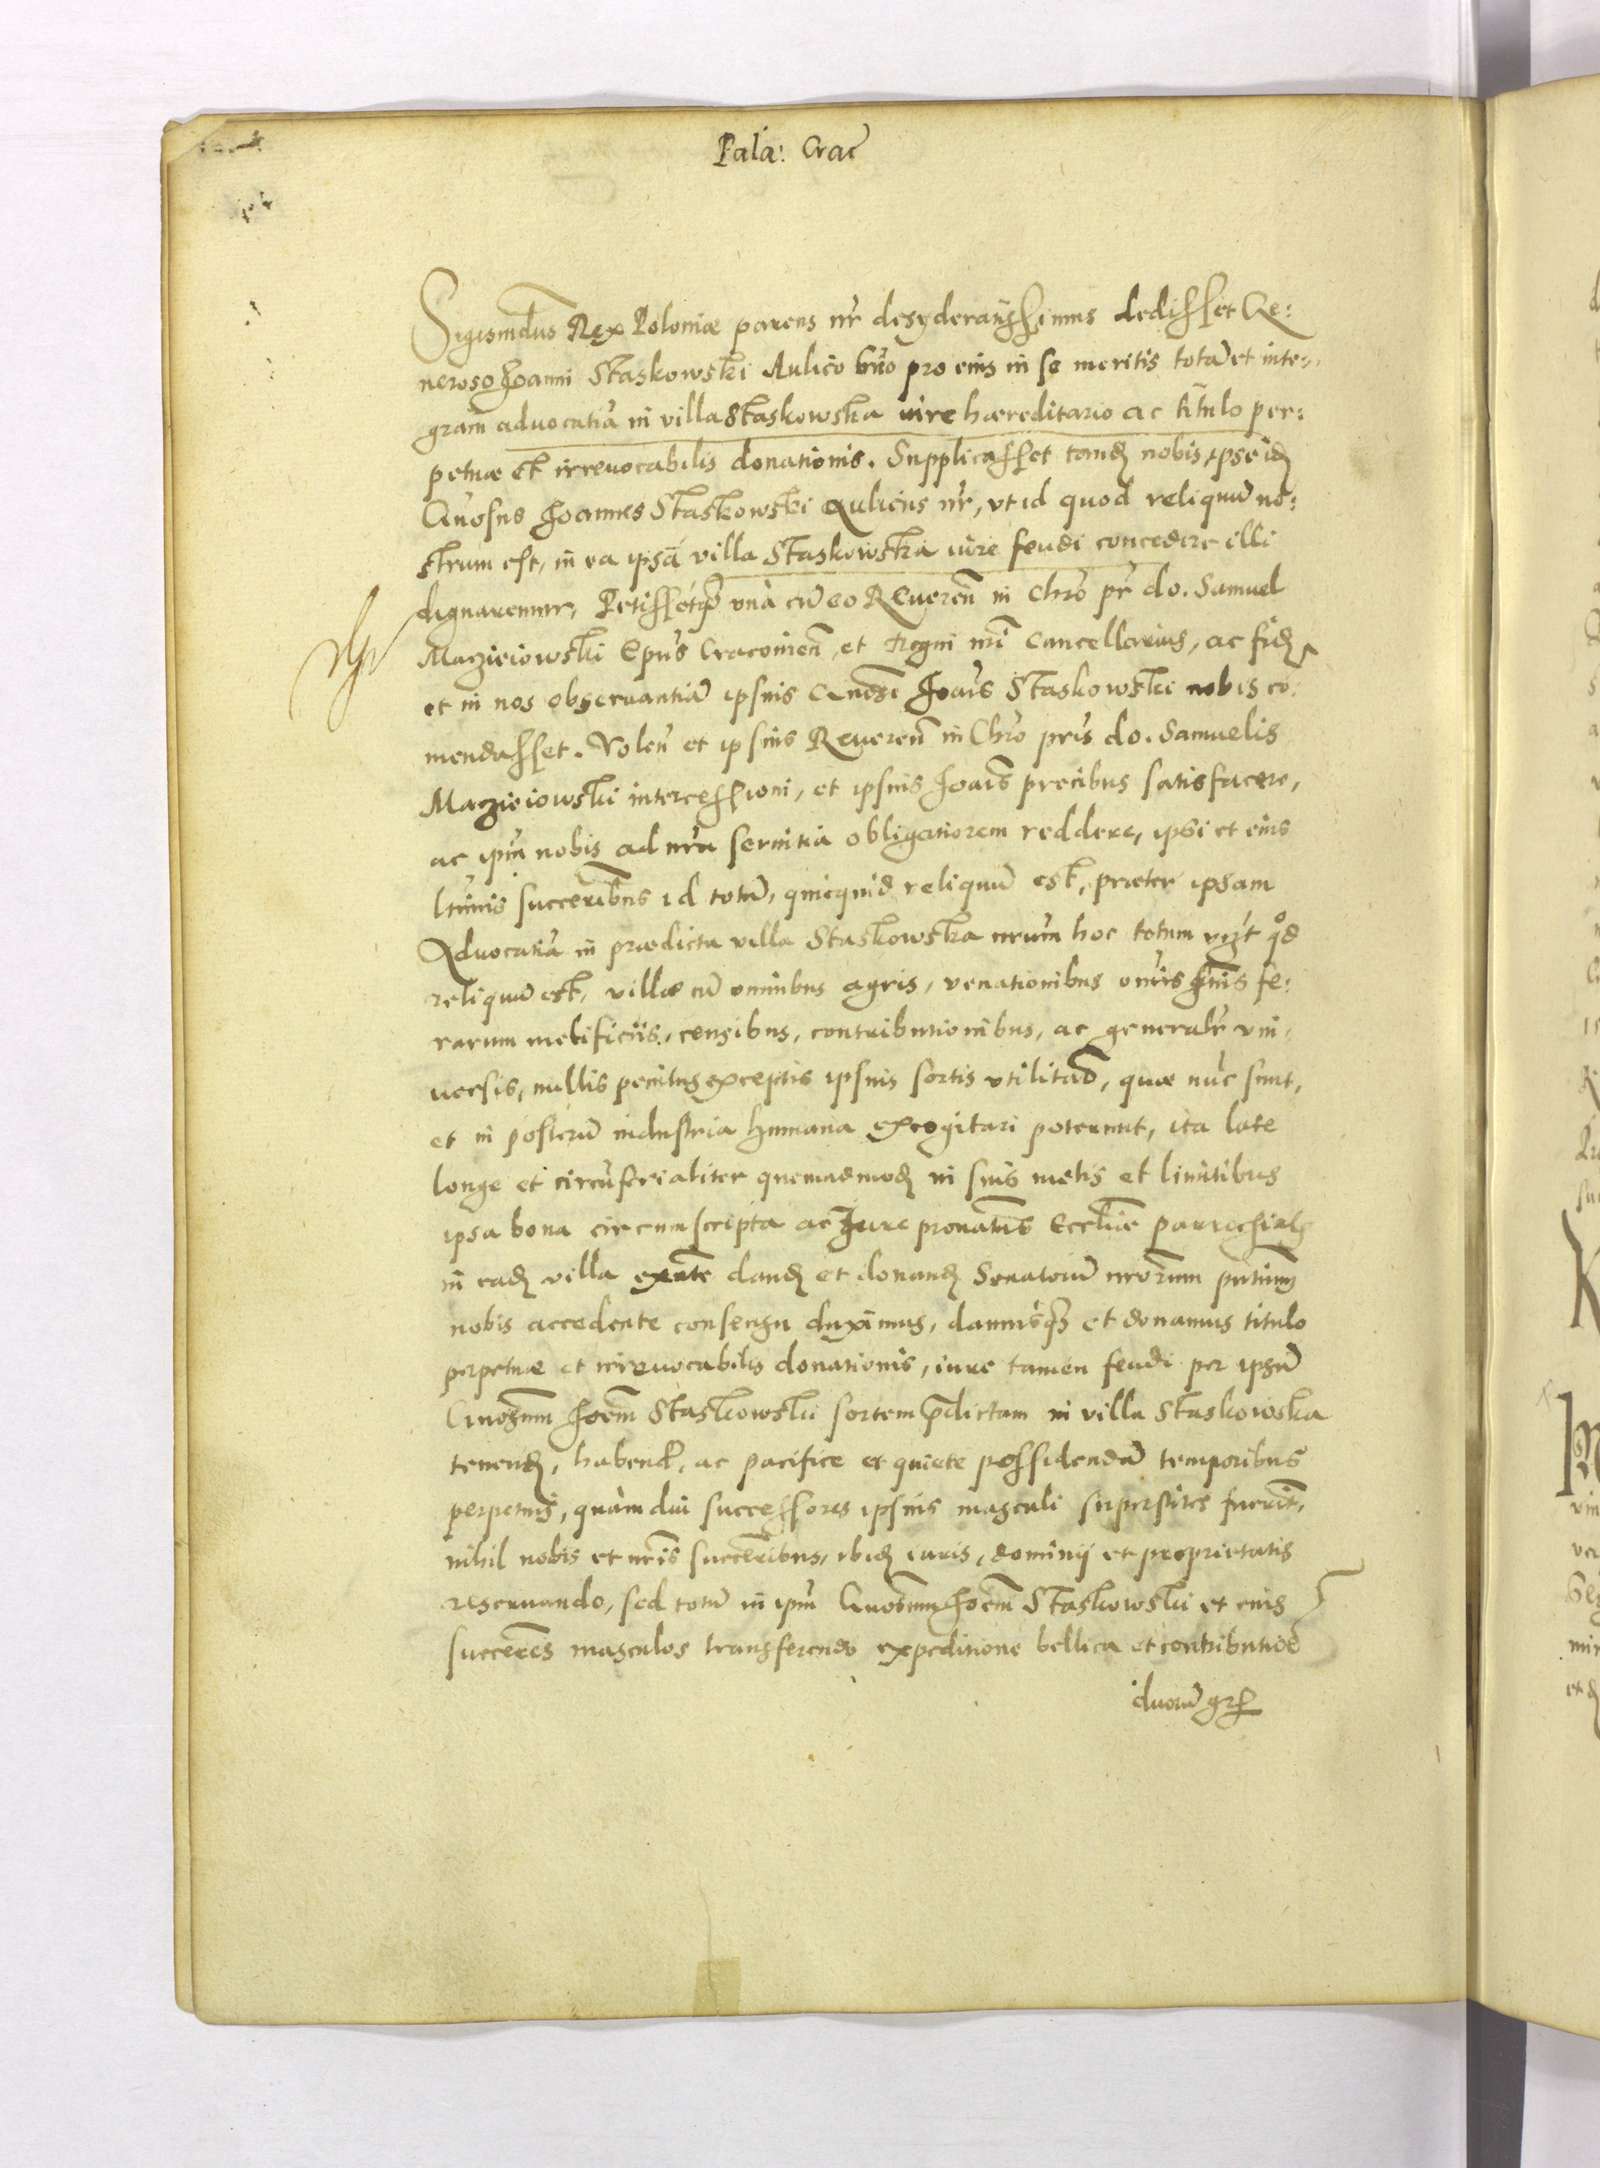 Pala: Crac
Sigismdus Rex Poloniæ parens nr desyderatissimus dedisset Ge:
neroso Joanni Staskowski Aulico suo pro eius in se meritis totã et inte:
gram aduocatiã in villa Staskowska iure hæreditario ac titulo per:
petuæ et irreuocabilis donationis. Supplicasset tandẽ nobis ipse idẽ
Gñosus Joannes Staskowski Aulicus nr, vt id quod reliquũ no:
strum est, in ea ipsã villa Staskowska iure feudi concedere illi
dignaremur, Petissetq̃ vnà cũ eo Reuereñ in Chro pr do. Samuel
Maczieiowski Epus Cracouieñ, et Regni nri Cancellarius, ac fidẽ
et in nos obseruantiã ipsius Gnosi Joañis Staskowski nobis cõ:
mendasset. Voleñ et ipsius Reuereñ in Chro pris do. Samuelis
Maczieiowski intercessioni, et ipsius Joañis precibus satisfacere,
ac ipm nobis ad nra seruitia obligatiorem reddere, ipsi et eius
ltimis succeribus id totũ, quicquid reliquũ est, præter ipsam
Aduocatiã in prædicta villa Staskowska nrum hoc totum qd
reliquũ est, villæ cũ omnibus agris, venationibus omis gnis fe:
rarum mellificiis, censibus, contributionibus, ac generalr vni:
uersis, nullis penitus exceptis ipsius sortis vtilitatib, quæ nũc sunt,
et in posterũ industria humana excogitari poterunt, ita late
longe et circũferialiter quemadmodũ in suis metis et limitibus
ipsa bona circumscripta ac Jure pronatus Eccliæ parrochialis
in eadẽ villa exñte dandũ et donandũ Senatorũ nrorum
nobis accedente consensu duximus, damusq̃ et donamus titulo
perpetuæ et irreuocabilis donationis, iure tamen feudi per ipsũ
Gnosum Joem Staskowski sortem p̃dictam in villa Staskowska
tenendã, habendã, ac pacifice et quiete possidendã temporibus
perpetuis, quàm diu successores ipsius masculi superstites fuerint,
nihil nobis et nris succeribus, ibidẽ iuris, dominij et proprietatis
reseruando, sed totũ in ipm Gnosum Joem Staskowski et eius
succeres masculos transferendo expeditione bellica et contributioe
duorũ gr